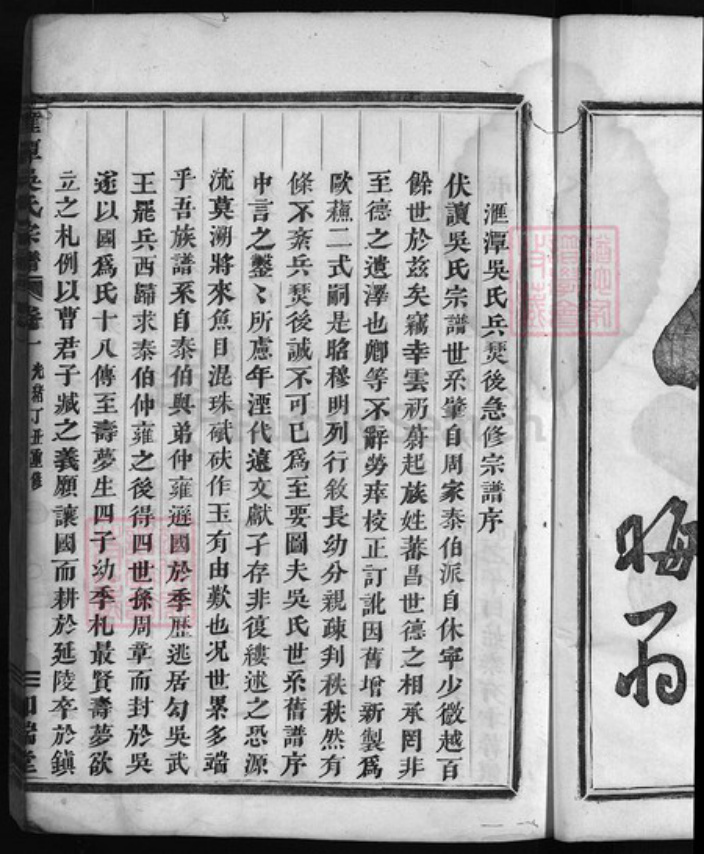 晦
滙潭吳氏兵燹後急修宗譜序
伏讀吳氏宗譜世系肇自周家泰伯派自休寧少微越百
餘世於茲矣竊幸雲礽蔚起族姓蕃昌世德之相承罔非
至德之遺澤也卿等不辭勞瘁校正訂訛因舊增新製為
歐蘓二式嗣是昭穆明列行敘長幼分親疎判秩秩然有
條不紊兵燹後誠不可已為至要圖夫吳氏世系舊譜序
中言之鑿〻所慮年湮代遠文獻孑存非復縷述之恐源
流莫溯將來魚目混珠碔砆作玉有由歎也况世累多端
乎吾族譜系自泰伯與弟仲雍遜國於季歷逃居勾吳武
王罷兵西歸求泰伯仲雍之後得四世孫周章而封於吳
遂以國爲氏十八傳至壽夢生四子幼季札最賢壽夢欲
立之札例以曹君子臧之義願讓國而耕於延陵卒於鎮
滙潭吳氏宗譜 卷一 光緒丁丑重修